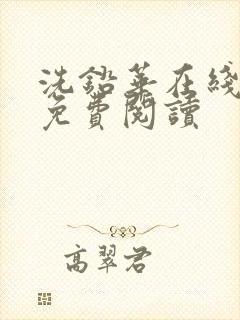 洗鉛華在綫
免費閱讀
高翠君